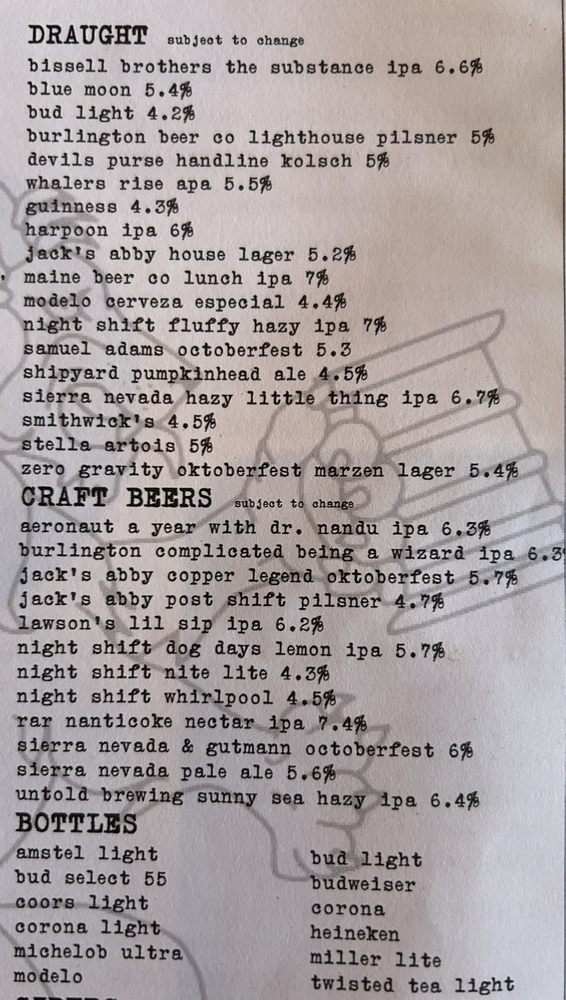 DRAUGHT subject to change
bissell brothers the substance ipa 6.6%
blue moon 5.4%
bud light 4.2%
burlington beer co lighthouse pilsner 5%
devils purse handline kolsch 5%
whalers rise apa 5.5%
guinness 4.3%
harpoon ipa 6%
jack's abby house lager 5.2%
maine beer co lunch ipa 7%
modelo cerveza especial 4.4%
night shift fluffy hazy ipa 7%
samuel adams octoberfest 5.3
shipyard pumpkinhead ale 4.5%
sierra nevada hazy little thing ipa 6.7%
smithwick's 4.5%
stella artois 5%
zero gravity oktoberfest marzen lager 5.4%
CRAFT BEERS subject to change
aeronaut a year with dr. nandu ipa 6.3%
burlington complicated being a wizard ipa 6.3
jack's abby copper legend oktoberfest 5.7%
jack's abby post shift pilsner 4.7%
lawson's lil sip ipa 6.2%
night shift dog days lemon ipa 5.7%
night shift nite lite 4.3%
night shift whirlpool 4.5%
rar nanticoke nectar ipa 7.4%
sierra nevada & gutmann octoberfest 6%
sierra nevada pale ale 5.6%
untold brewing sunny sea hazy ipa 6.4%
BOTTLES
amstel light
bud select 55
coors light
corona light
michelob ultra
modelo
bud light
budweiser
corona
heineken
miller lite
twisted tea light